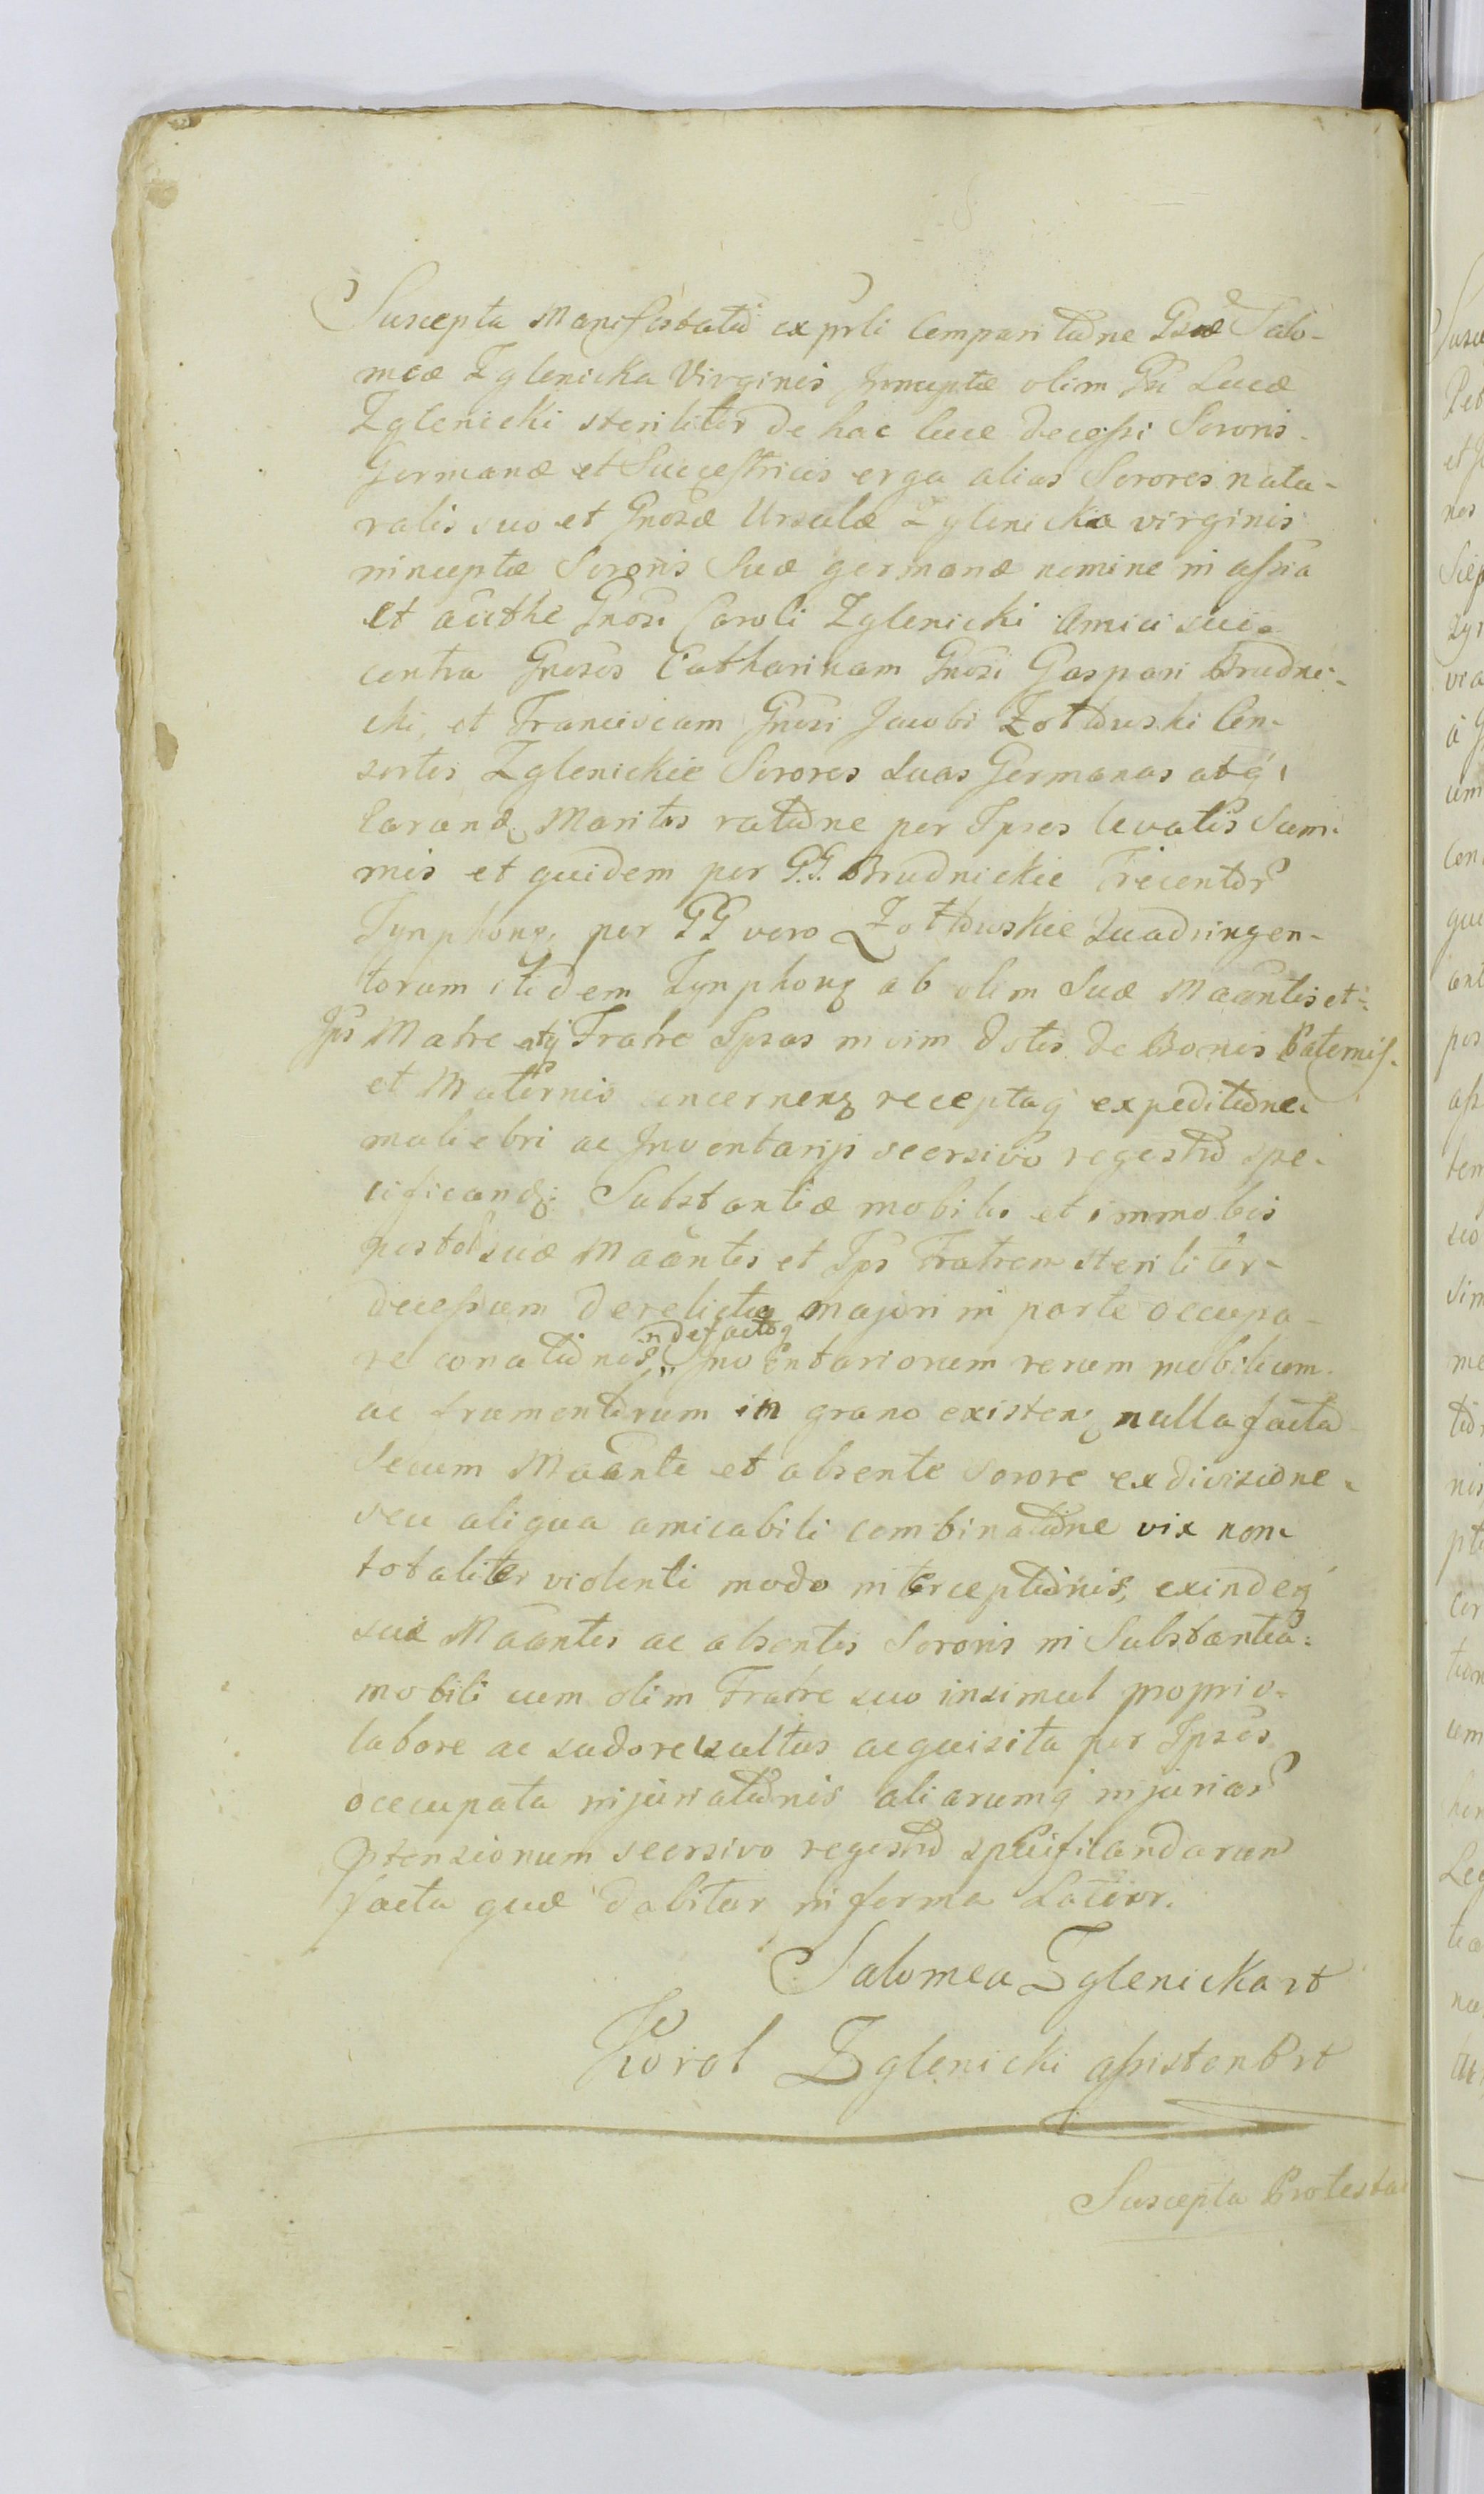 Suscepta Manifestatio ex prsli Comparitione Gsæ Salo-
meæ Zglenicka Virginis Innuptæ olim Gsi Lucæ
Zglenicki steriliter de hac luce decessi Sororis
Germanæ et Successtricis erga alias Sorores natu-
ralis suo et Gnosæ Ursulæ Zglenicka virginis
innuptæ Sororis Suæ germanæ nomine in assia
et authe Gnosi Caroli Zglenicki Amici sui
contra Gnosos Catharinam Gnosi Gaspari Brudni-
cki, et Franciscam Gnosi Jacobi Żołtowski Con-
sortes Zglenickie Sorores Suas Germanas atq
Earand Maritos ratione per Ipsos levatis Sum-
mis et quidem per G.G. Brudnickie Trecentor
Tynphonq per GG vero Żołtowskie Quadringen-
torum itidem Tynphonq ab olim Suæ Maantis et
Ips Matre atq Fratre Ipsas in vim dotis de Bonis Paternis
et Maternis concernenq receptaq expeditione
muliebri ac Inventarij seorsivo regestro spe-
cificandq Substantiæ mobilis et immobis
post suæ Maantis et Ips Fratrem steriliter
decessum derelictæ majori in parte occupa-
re conationis, indefactoq Inventariorum rerum mobilium
ac frumentorum in grano existenq nulla facta
Secum Maante et absente sorore exdivisione
seu aliqua amicabili combinatione vix non
totaliter violenti modo interceptionis, exindeq
suæ Maantis ac absentis Sororis in Substantia
mobili cum olim Fratre suo insimul proprio
labore ac sudore vultus acquisita per Ipsos
occupata injuriationis aliarumq injuriar
Ptensionum seorsivo regestro specificandarum
facta quæ dabitur in forma Latior.
Salomea Zglenicka rt
Karol Zglenicki assistent Prt
Suscepta Protesta